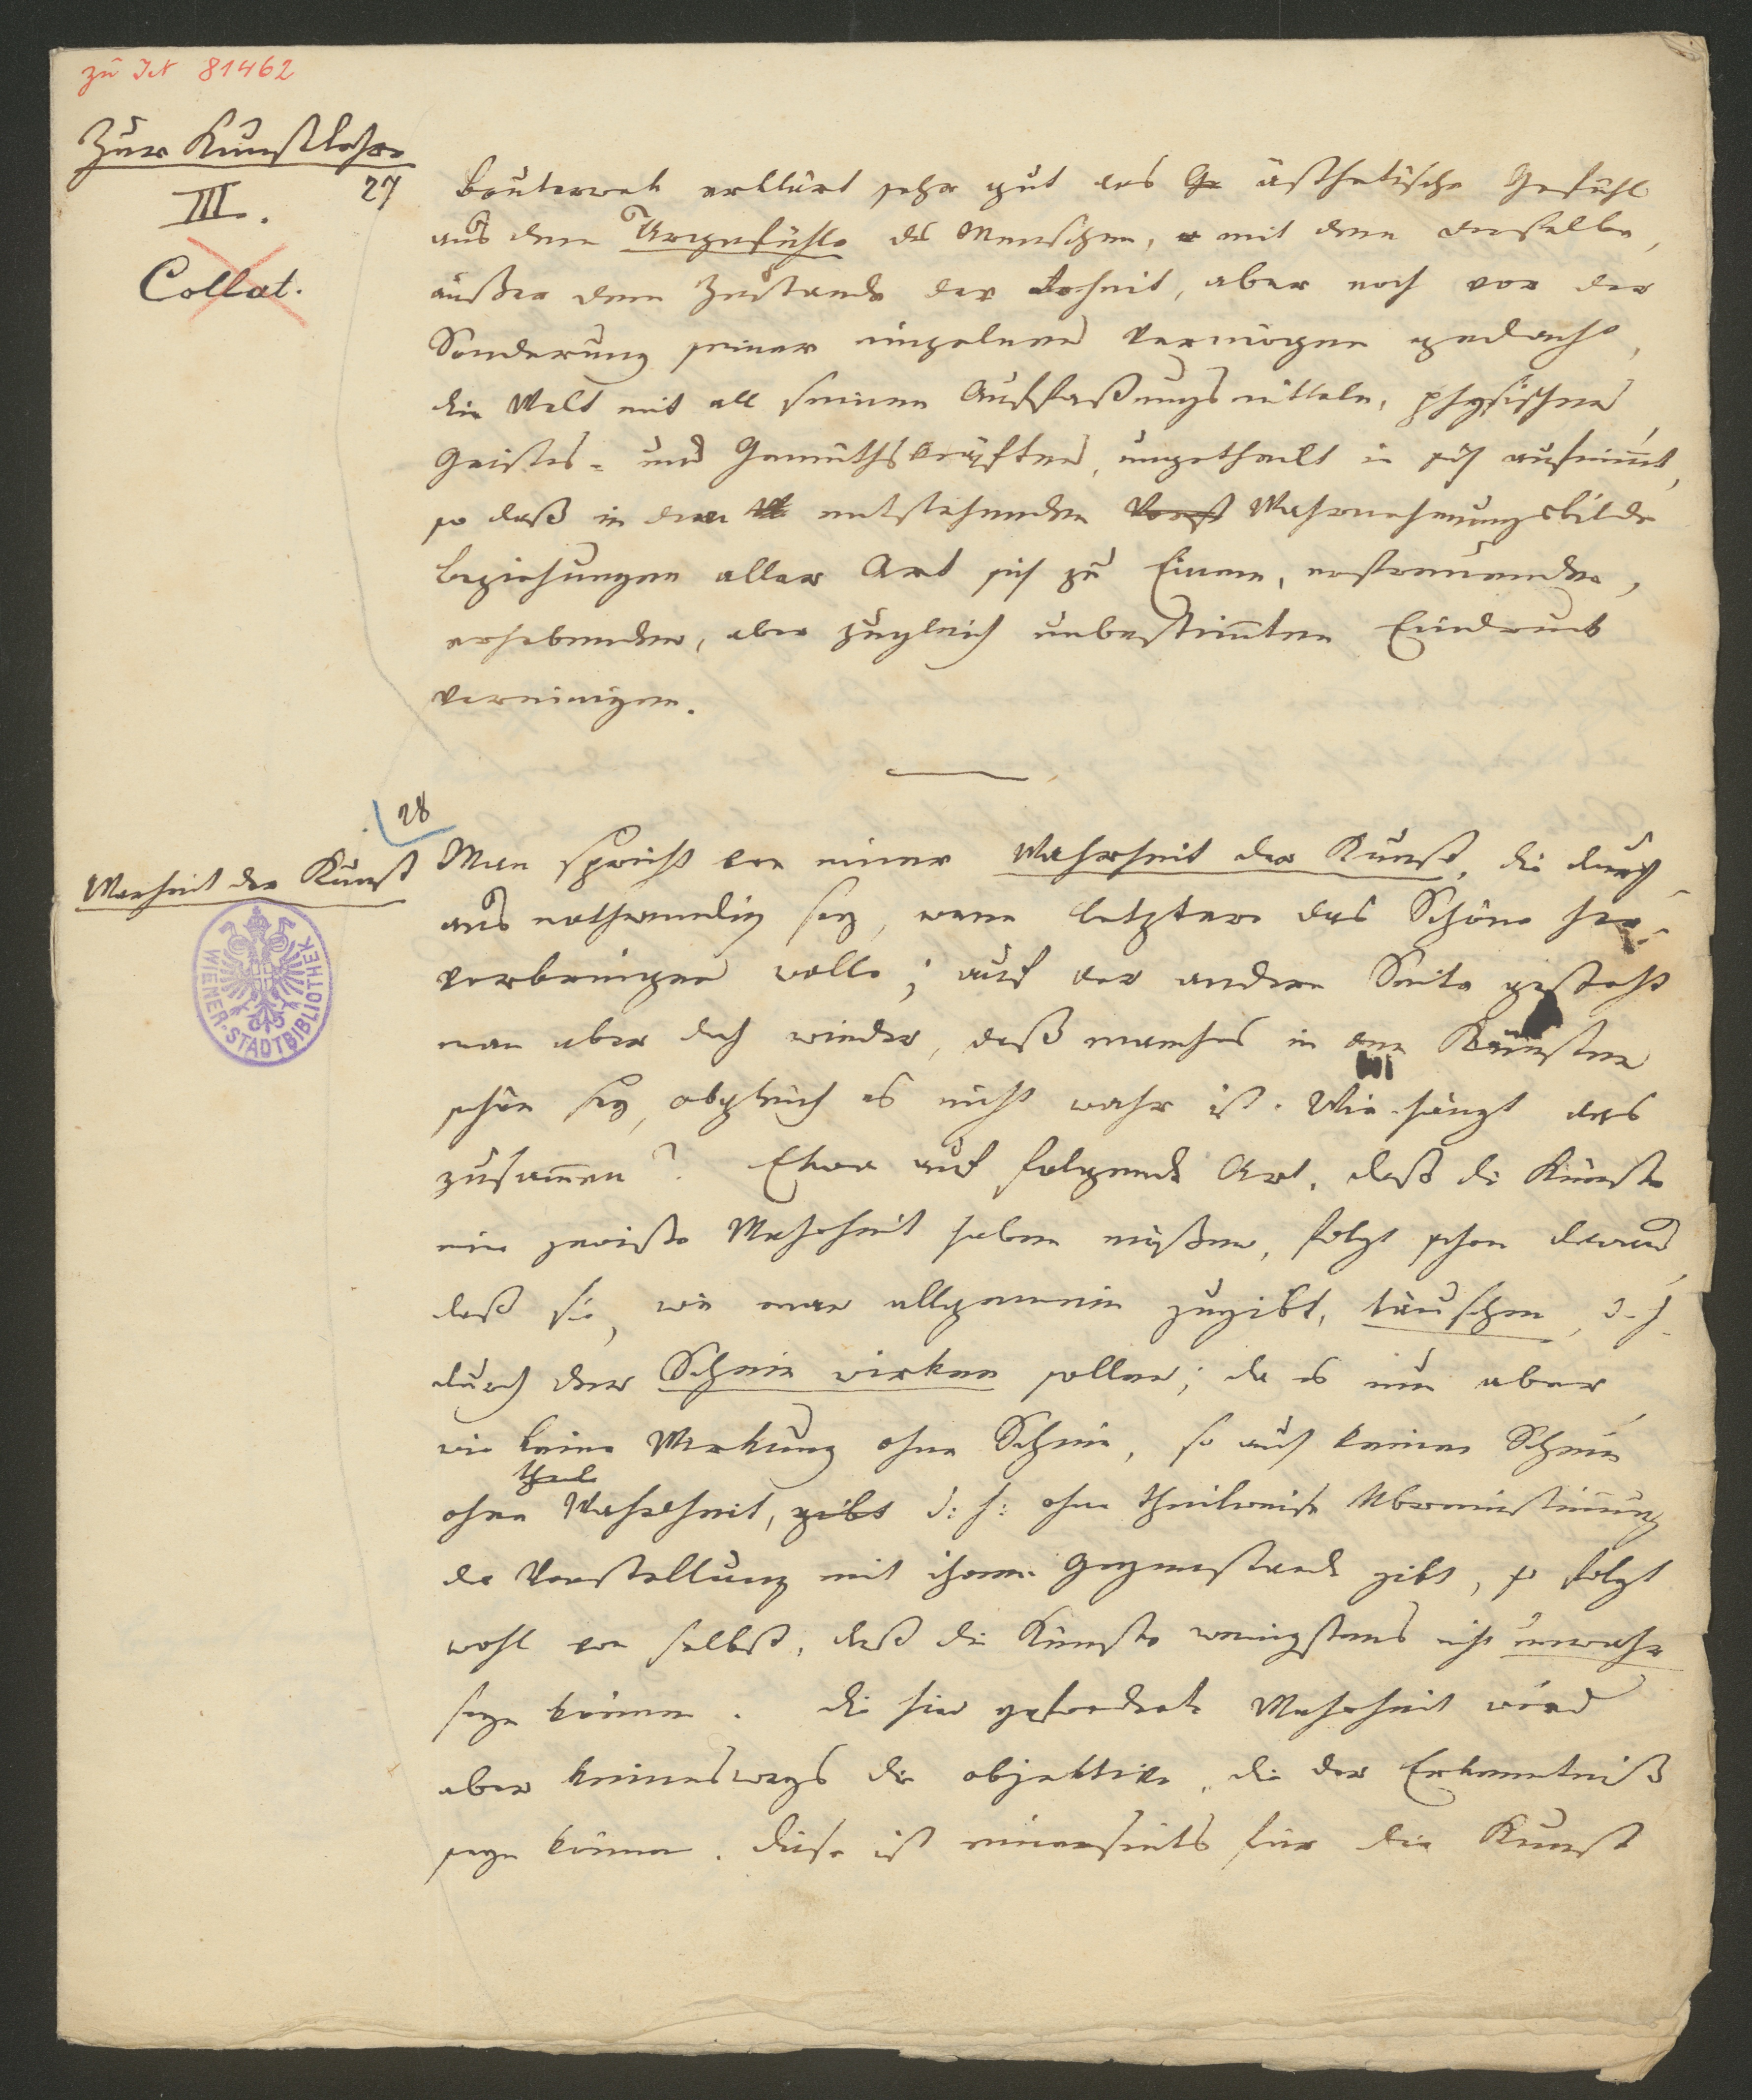 zu IN 81462
Zur Kunstlehre
III.
Collat.
27
Bouterwek erklärt sehr gut das Ge ästhetische Gefühl
aus dem Urgefühle des Menschen, mit dem derselbe,
außer dem Zustande der Rohheit, aber noch vor der
Sonderung seiner einzelnen Vermögen gedacht,
die Welt mit all seinen Auffaßungsmitteln, physischen,
Geistes- und Gemüthskräften, ungetheilt in sich aufnimmt,
so daß in dem entstehenden Vorst Wahrnehmungsbilde
Beziehungen aller Art sich zu Einem, erfreuenden,
erhebenden, aber zugleich unbestimmten Eindruck
vereinigen.
28
Warheit der Kunst
Man spricht von einer Wahrheit der Kunst, die durch-
aus nothwendig sey, wenn letztere das Schöne her-
vorbringen wolle; auf der andern Seite gesteht
man aber doch wieder, daß manches in den Künsten
schön sey, obgleich es nicht wahr ist. Wie hängt das
zusammen? Etwa auf folgende Art. daß die Künste
eine gewiße Wahrheit haben müßen, folgt schon daraus,
daß sie, wie man allgemein zugibt, täuschen, d. h.
durch den Schein wirken sollen; da es nun aber,
wie keine Wirkung ohne Schein, so auch keinen Schein
theil
ohne Wahrheit, gibt d: h: ohne theilweise Übereinstimmung
der Vorstellung mit ihrem Gegenstande gibt, so folgt
wohl von selbst, daß die Künste wenigstens nicht unwahr
seyn können. die hier geforderte Wahrheit wird
aber keineswegs die objektive, die der Erkenntniß
seyn können. diese ist einerseits für die Kunst
WIENER-STADTBIBLIOTHEK